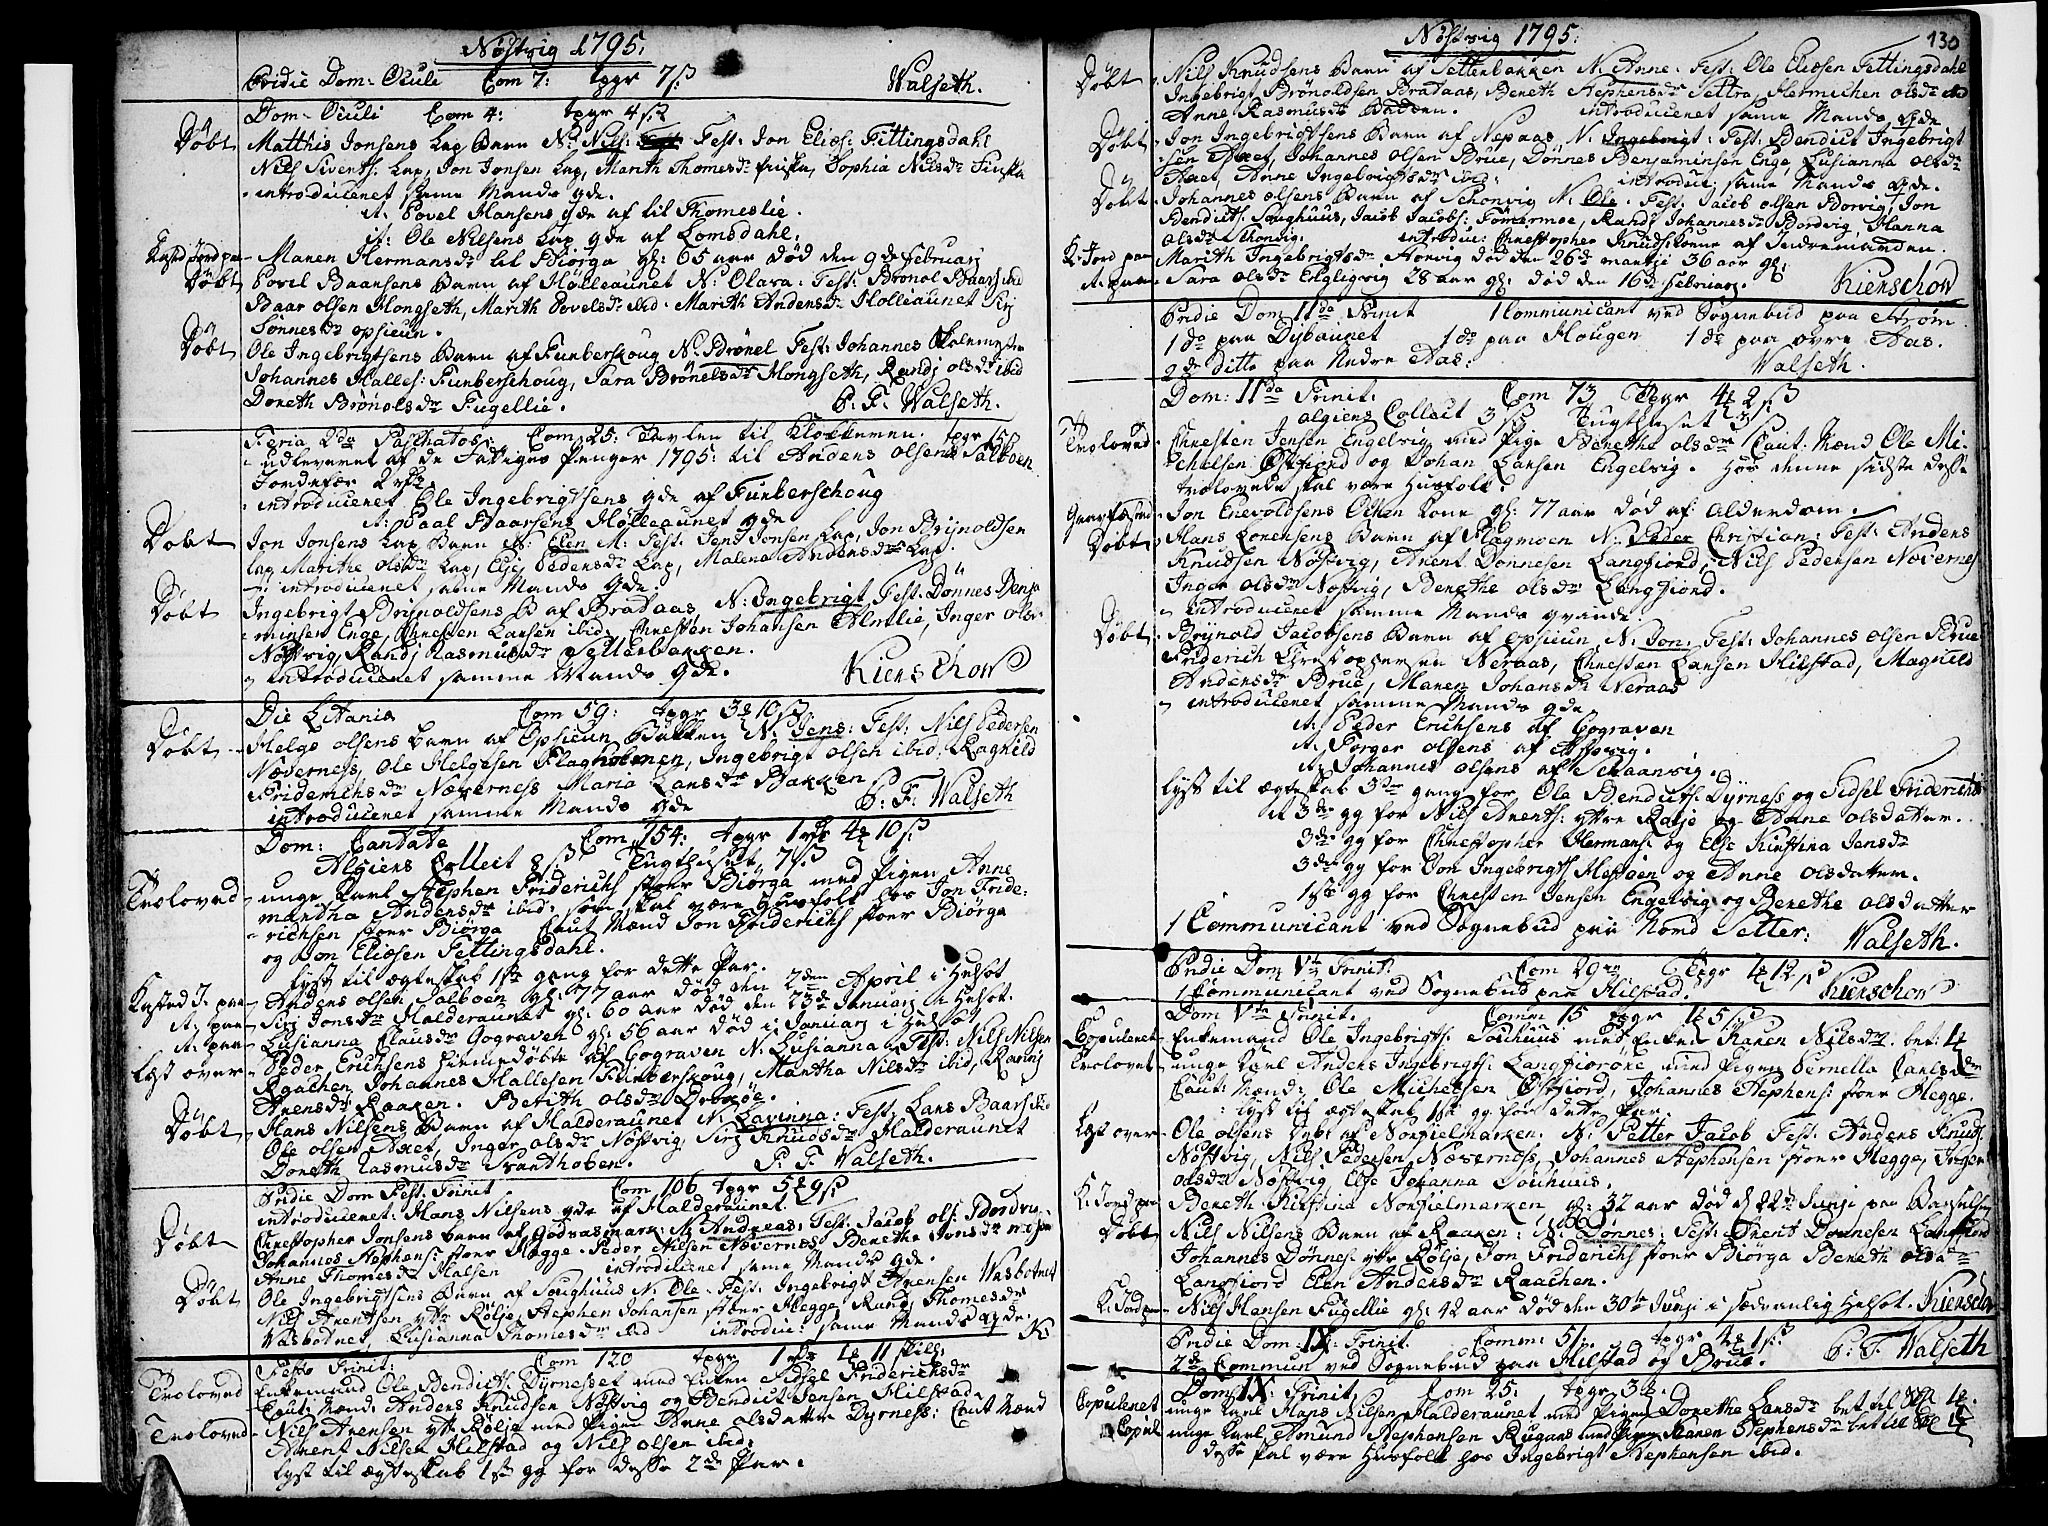 Nöstvig 1795.
Pridie Dom: Oculi Com 7: tpgr 7 ß Walseth.
Dom: Oculi Com 4: tpgr 4 ß
Döbt Matthis Jonsens Lap Barn N: Nils: Fest: Jon Eliæs: Fettingsdahl
Nils Siverts: Lap, Jon Jonsen Lap, Marith Thomesdr Finska, Sophia Nilsdr Finska
introduceret samme Mands qde.
it: Povel Hansens qde af lil Thomeslie.
it: Ole Nilsens Lap qde af Lomsdahl.
Kasted Jord paa Maren Hermansdr lil Biörga gl: 65 aar död den 9de Februarj
Döbt Povil Baarsens Barn af Hölleaunet N: Olava: Fest: Brönol Baars: ibid
Baar olsen Hongseth, Marith Povelsdr ibid. Marith Andersdr Holleaunet Sirj
Sönnesdr opsieun.
Döbt Ole Ingebrigtsens Barn af Funberskoug N: Brönel Fest: Johannes Skolemester
Johannes Halles: Funberschoug, Sara Brönelsdr Hongseth, Randj olsdr ibid
Doreth Brönolsdr Fugellie. P. F. Walseth.
Feria 2da Paschatos: Com 25: Tavlen til Klokkeren. tpgr 15 ß
udleveret af de Fattiges Penger 1795: til Anders olsen Salboen
Jordefær 2 rdr.
introduceret Ole Ingebrigtsens qde af Funberschoug
it: Paal Baarsens Hölleaunet qde
Döbt Jon Jonsens Lap Barn N: Elen M: Fest: Jens Jonsen Lap, Jon Brynoldsen
Lap Marithe olsdr Lap, Else Pedersdr Lap, Malena Andersdr Lap.
introduceret samme Mands qde.
Döbt Ingebrigt Brynoldsens B af Brataas, N: Ingebrigt Fest: Dönnes Benja
minsen Enge, Christen Larsen ibid, Christen Johansen Almlie, Inger olsdr
Nöstvig, Randj Rasmusdr Setterbakken.
introduceret samme Mands qde. Kierschow
Die Litania Com 59: tpgr 3 10 ß
Döbt Helge olsens barn af Opsieun Bakken N: Jens: Fest: Nils Pedersen
Næverness, Ole Helgesen Flagholmen, Ingebrigt olsen ibid, Ragnild
Friderichsdr Næverness Maria Larsdr Bakken
introduceret samme Mands qde P. F. Walseth
Dom: Cantate Com 154: tpgr 1 rdr 4 10 ß
Algiers Collect 8 ß Tugthuset 7 ß
Troloved unge Karl Stephen Friderichs: stoer Biörga med Pigen Anne
martha Andersdr ibid: som skal være Huusfolk hos Jon Fride:
richsen stoer Biörga Caut: Mænd Jon Friderichs stoer Biörga
og Jon Eliæsen Fettingsdahl.
lyst til ægteskab 1ste gang for dette Par.
Kasted J. paa Anders olsen Salboen gl: 77 aar död den 2den April i Helsot
it: paa Siri Jonsdr Halderaunet gl: 60 aar död den 23de Januarj i Helsot.
it: paa Lusianna Clausdr Gograven gl: 56 aar död i Januarj i Helsot
Læst over Peder Erichsens hiemmedöbte af Gograven N: Lusianna Fest: Nils Nilsen
Raachen Johannes Hallesen Funberskoug, Martha Nilsdr ibid,
Arensdr Raaken. Berith olsdr
Döbt Hans Nilsens Barn af Halderaunet N: Lavinna: Fest: Lars Baars: ibid
Ole olsen Axet, Inger olsdr Nöstvig, Sirj Knudsdr Halderaunet
Doreth Rasmusdr Svarthoben. P. F. Walseth.
Pridie Dom Fest: Trinit Com 106 tpgr 5 9 ß
introduceret: Hans Nilsens qde af Halderaunet.
Döbt Christopher Jonsens barn af Godvasmark: N: Andreas: Fest: Jacob ols:
Johannes Stephens: stoer Hegge. Peder Nilsen Næverness Berethe Jonsdr
Anne Thomesdr Halsen introduceret same Mands qde.
Döbt Ole Ingebrigtsens Barn af Soughuus N: Ole. Fest: Ingebrigt Arensen Wasbotnet
Nils Arentsen ytre Rölje, Stephen Johansen stoer Hegge, Thomesdr
Wasbotnet, Lusianna Thomesdr ibid introduc: same Mands qde. K:
Festo Trinit: Com 120 tpgr 1 rdr 4 11 skill:
Trolovet Enkemand Ole Bendicts: Dyrnesset med Enken Sidsel Friderichsdr
Caut: Mænd: Anders Knudsen Nöstvig og Bendict Jensen Hilstad.
Trolovet Nils Arensen ytt Rölje med Pigen Anne olsdatter Dyrness: Caut Mænd
Arent Nilsen Hilstad og Nils olsen ibid.
lyst til ægteskab 1ste gg for disse 2de Par.
Nöstvig 1795. 130
Döbt Nils Knudsens Barn af Setterbakken N: Anne. Fest: Ole Eliæsen Fettingsdahl
Ingebrigt Brönoldsen Brataas, Bereth Stephensdr Settra, Hermichen olsdr ibid
Anne Rasmusdr Bakken. introduceret same Mands qde
Döbt Jon Ingebrigtsens Barn af Nepaas N: Ingebrigt: Fest: Bendict Ingebrigt
sen Axet, Johannes olsen Brue, Dönnes Benjaminsen Enge, Lusianna olsdr
Axet, Anne Ingebrigtsdr ibid: introduc: same Mands qde.
Döbt Johannes olsens Barn af Schonvig N: Ole. Fest: Jacob olsen Borvig, Jon
Bendicts: Soughuus, Jacob Jacobs: Fornermoe, Randj Johannesdr Bordvig, Hanna
olsdr Schonvig. introduc: Christopher Knuds: kone af Indremarken.
K: Jord paa Marith Ingebrigtsdr Horvig död den 26de martij 36 aar gl:
it: paa Sara olsdr Engligvig 28 aar gl: död den 16de Februarj. Kierschow
Pridie Dom 11da Trinit 1 Communicant ved Sognebud paa Ström
1 do paa Dysbaunet 1 do paa Hougen 1 do paa övre Aas.
2de ditto paa Nedre Aas. Walseth.
Dom: 11da Trinit: Com 73 tpgr 4 2 ß
algiers Collect 3 ß Tugthuset 3 ß
Trolovet Christen Jensen Engelvig med Pige Berethe olsdr Caut: Mænd Ole Mi-
chelsen Östfiord og Johan Larsen Engelvig. Hos denne sidste disse
trolovede skal være Husfolk.
Graffæsted Jon Enevoldsens Olken kone gl: 77 aar död af Alderdom.
Döbt Hans Lorensens Barn af Flagmoen N: Peder Christian: Fest: Anders
Knudsen Nöstvig, Arent Dönnesen Langfiord, Nils Pedersen Næverness
Inger olsdr Nöstvig, Berethe olsdr Langfiord.
introduceret samme Mands qvinde.
Döbt Brynold Jacobsens Barn af opsieun N: Jon. Fest: Johannes olsen Brue
Friderich Christophersen Neraas, Christen Larsen Hilstad, Magnild
Andersdr Brue, Maren Johansdr Neraas
introduceret samme Mands qde
it: Peder Erichsens af Gograven
it: Torger olsens af
it: Johannes olsens af Schaanvig.
lyst til ægteskab 3die gang for Ole Bendicts: Dyrness og Sidsel Friderichsdr
it 3die gg for Nils Arents: yttre Rölje og Anne olsdatter.
3die gg for Christopher Hermans: og Else Kirstina Jensdr
3die gg for Jon Ingebrigts: Hessöen og Anne olsdatter.
1ste gg for Christen Jensen Engelvig og Berethe olsdatter
1 Communicant ved Sognebud paa Nord Setter: Walseth.
Pridie Dom Vte Trinit: Com 29 tpgr 4 12 ß
1 Communicant ved Sognebud paa Hilstad. Kierschow
Dom Vte Trinit. Comm 15 tpgr 1 5 ß
Copuleret Enkemand Ole Ingebrigts: Souhuus med Enken Karen Nilsdr. bet: 4
Trolovet unge Karl Anders Ingebrigts: Langfiordre med Pigen Pernella Carlsdr
Caut: Mænd: Ole Michelsen Östfiord, Johannes Stephens: stoer Hegge.
lyst til ægteskab 1ste gg for dette Par.
Læst over Ole olsens Döbt af Norfielmarken: N: Petter Jacob Fest: Anders Knuds:
Nöstvig, Nils Pedersen Næverness, Johannes Stephensen stoer Hegge, Inger
olsdr Nöstvig, Else Johanna Souhuus.
K: Jord paa Bereth Kirstina Norfielmarken gl: 32 aar död d 22de Junj paa Barselseng
Döbt Nils Nilsens Barn af Raaken: N: Dönnes: Fest: Arent Dönnesen Langfiord
Johannes Dönnes: ytre Rölje, Jon Friderichs stoer Biörga Bereth olsdr
Langfiord Elen Andersdr Raachen.
K: Jord paa Nils Hansen Fugellie gl: 42 aar död den 30te Junj i sædvanlig Helsot. Kierschow
Pridie Dom: IX: Trinit. Comm: 51: tpgr 4 1 ß
2de Commun ved Sognebud paa Hilstad og Brue. P: F Walseth
Dom IX: Trinit. Com 25: tpgr 3
Copuleret unge Karl Hans Nilsen Halderaunet med Pigen Dorethe Larsdr bet til 4
Copul unge Karl Amund Stephensen Rugaas med Pigen Karen Stephensdr bet til
disse skal være Husfolk hos Ingebrigt Stephensen ibid.